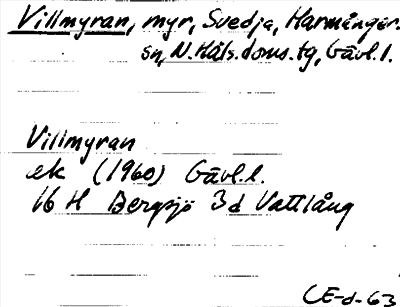 Villmyran, myr, Svedja, Harmånger.
sn, N. Häls. doms. tg, Gävl. l.
Villmyran
ek (1960) Gävl. l.
16 H Bergsjö 3d Vattlång
CE-d-63